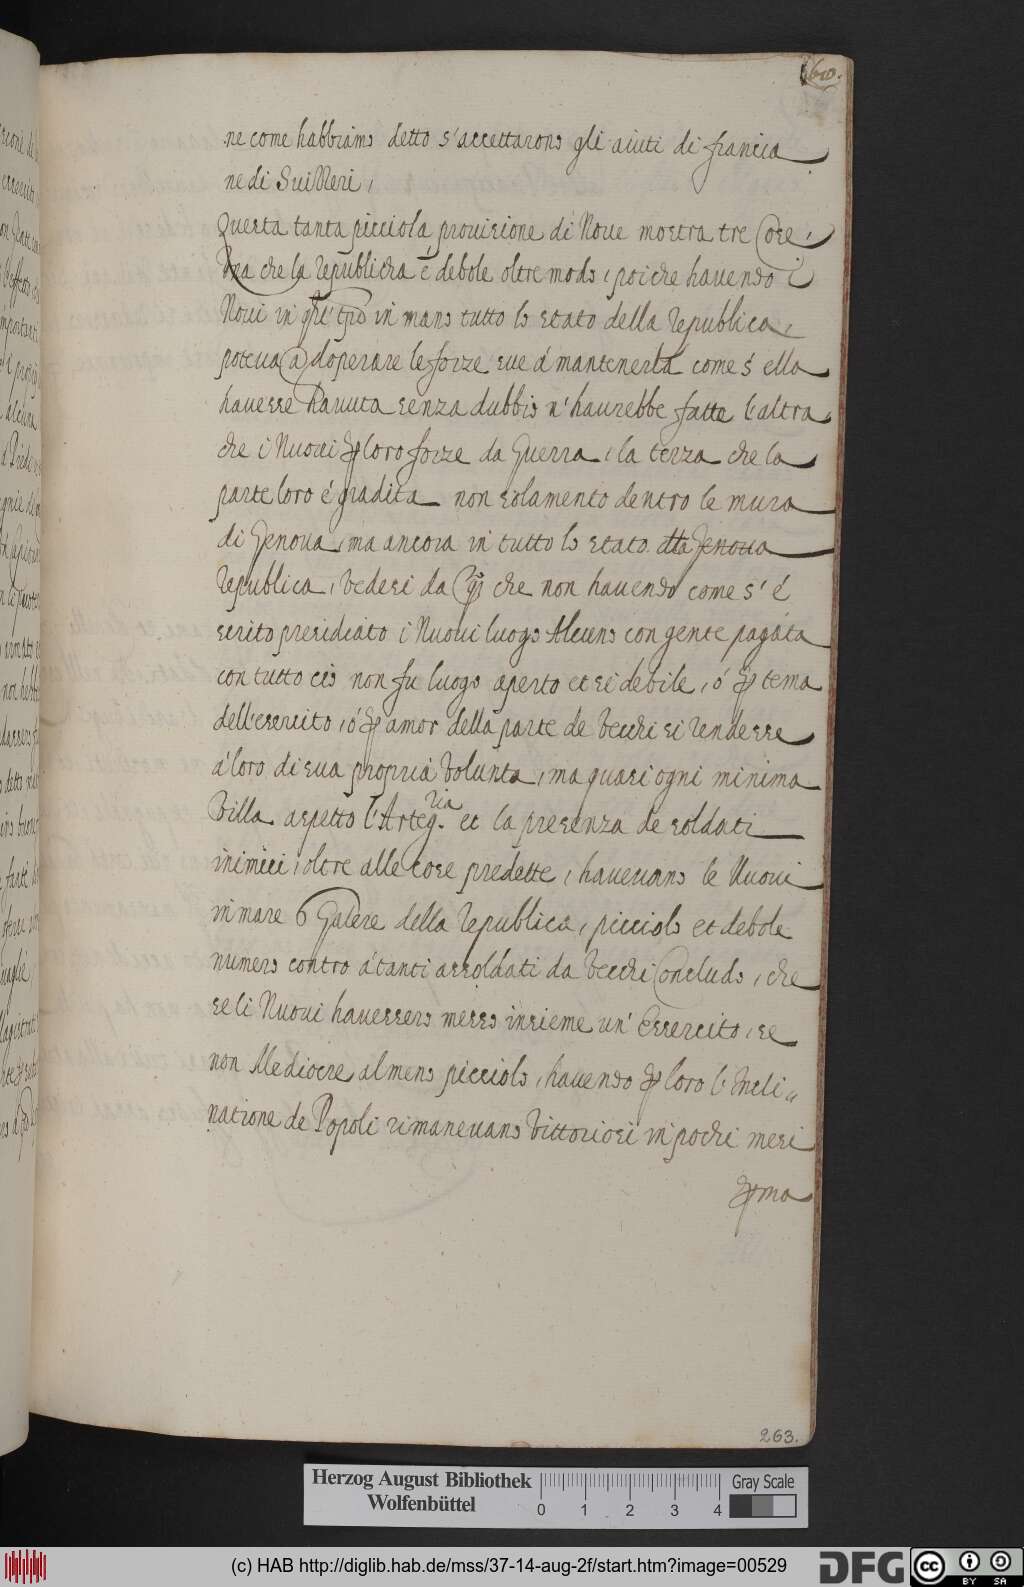 60.
ne come habbiamo detto s'accettarono gli aiuti di francia
ne di Suizzeri,
Questa tanta picciola prouisione di Noue mostra tre Cose,
Vna che la Republicha é debole oltre modo, poiche hauendo i
Noui in in mano tutto lo stato della Republica,
poteua adoperare le forze sue á mantenerla come s'ella
hauesse hauuta senza dubbio n'haurebbe fatte l'altra
che i Nuoui loro forze da Guerra, la terza che la
parte loro é gradita non solamento dentro le mura
di Genoua, ma ancora in tutto lo stato dlla Genoua
Republica, vedesi da che non hauendo come s'é
scrito presidiato i Nuoui luogo Alcuno con gente pagáta
con tutto ció non fu luogo aperto et si debile, ó ꝑ tema
dell'esercito, ó ꝑ amor della parte de Vecchi si rendesse
á loro di sua propria Volunta, ma quasi ogni minima
Villa aspetto l'Artegria. et la presenza de soldati
inimici, oltre alle cose predette, haueuano le Nuoui
in mare 6 Galere della Republica, picciolo et debole
numero contro á tanti assoldati da Vecchi Concludo, che
se li Nuoui hauessero messo insieme un' Essercito, se
non Mediocre almeno picciolo, hauendo ꝑ loro l'Incli„
natione de Popoli rimaneuano Vittoriosi in pochi mesi
ꝑma
263.
Herzog August Bibliothek
Wolfenbüttel
0 1 2 3 4
Gray Scale
(c) HAB http://diglib.hab.de/mss/37-14-aug-2f/start.htm?image=00529
DFG
cc BY SA